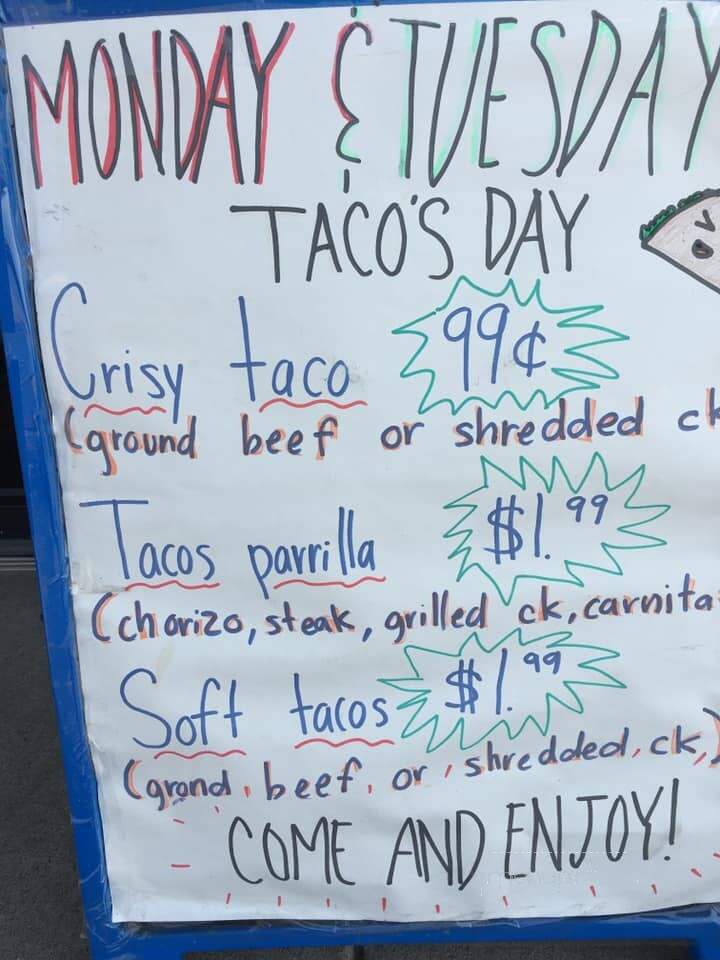 MONDAY & TUESDAY
TACO'S DAY
Crisy taco 99¢
(ground beef or shredded ck
Tacos parrilla $1.99
(chorizo, steak, grilled ck, carnita
Soft tacos $1.99
(grond, beef, or, shredded, ck,)
COME AND ENJOY!